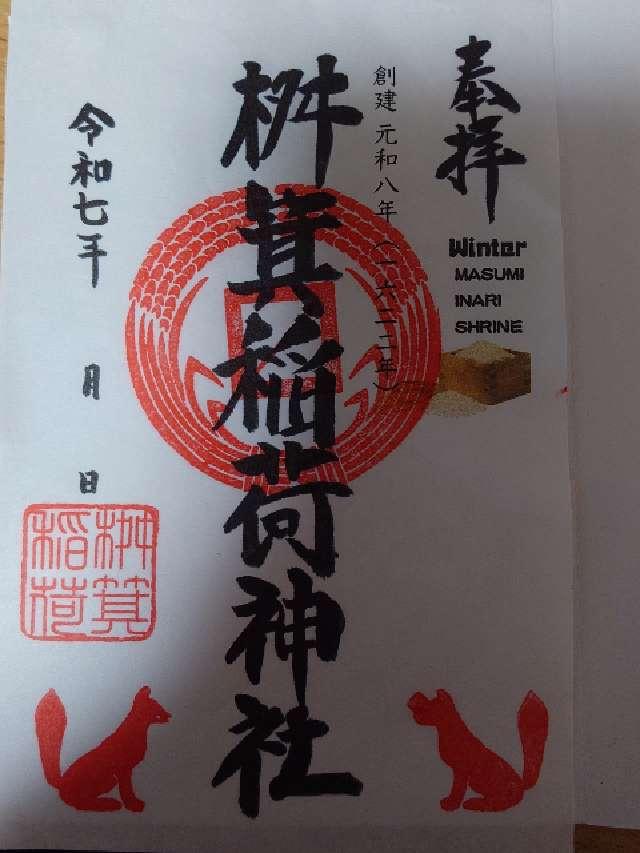 奉拝
Winter
MASUMI
INARI
SHRINE
創建 元和八年(一六二二年)
桝箕稲荷神社
令和七年 月 日
桝箕
稲荷